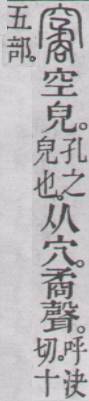 䆷空皃。孔之皃也。从穴。矞聲。呼決切。十
五部。